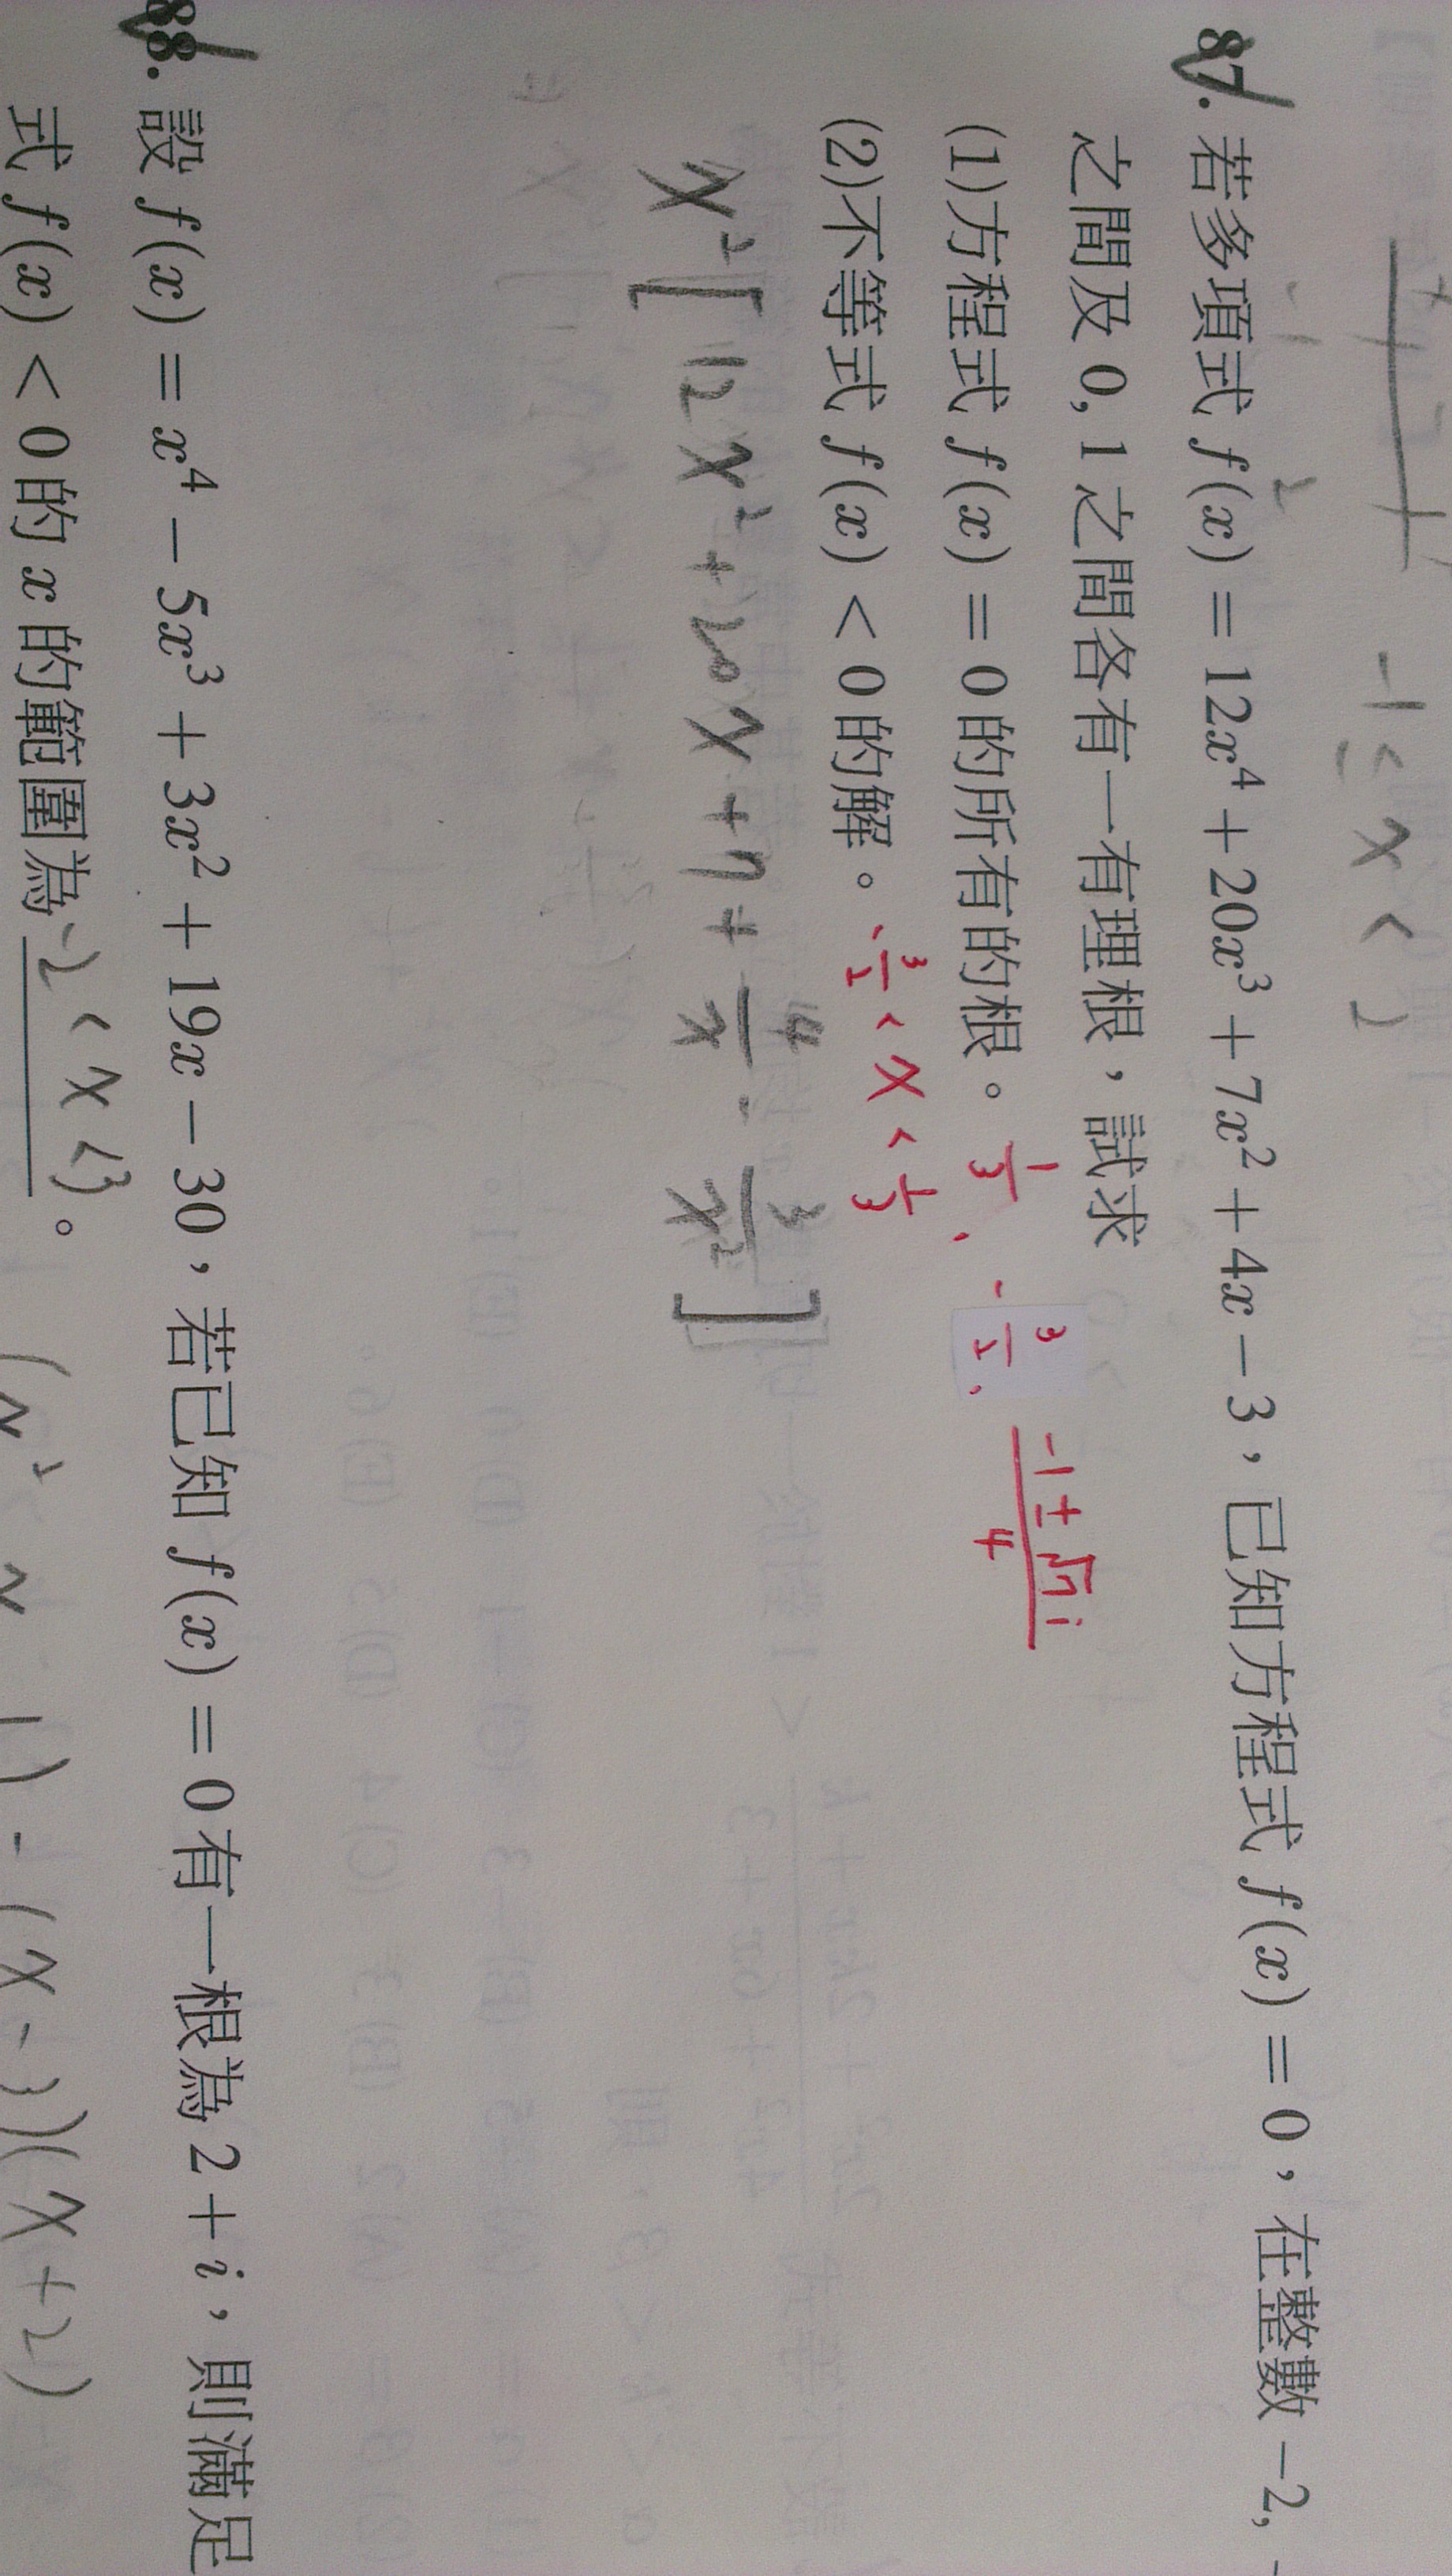 -1 ≤ x < 2
-1 2
87. 若多項式 f(x) = 12x⁴ + 20x³ + 7x² + 4x − 3，已知方程式 f(x) = 0，在整數 −2, −
之間及 0, 1 之間各有一有理根，試求
(1)方程式 f(x) = 0 的所有的根。 1/3, -3/2, (-1±√7i)/4
(2)不等式 f(x) < 0 的解。 -3/2 < x < 1/3
x² [ 12x² + 20x + 7 + 4/x - 3/x² ]
88. 設 f(x) = x⁴ − 5x³ + 3x² + 19x − 30，若已知 f(x) = 0 有一根為 2 + i，則滿足
式 f(x) < 0 的 x 的範圍為 -2 < x < 3。
(x-3)(x+2)